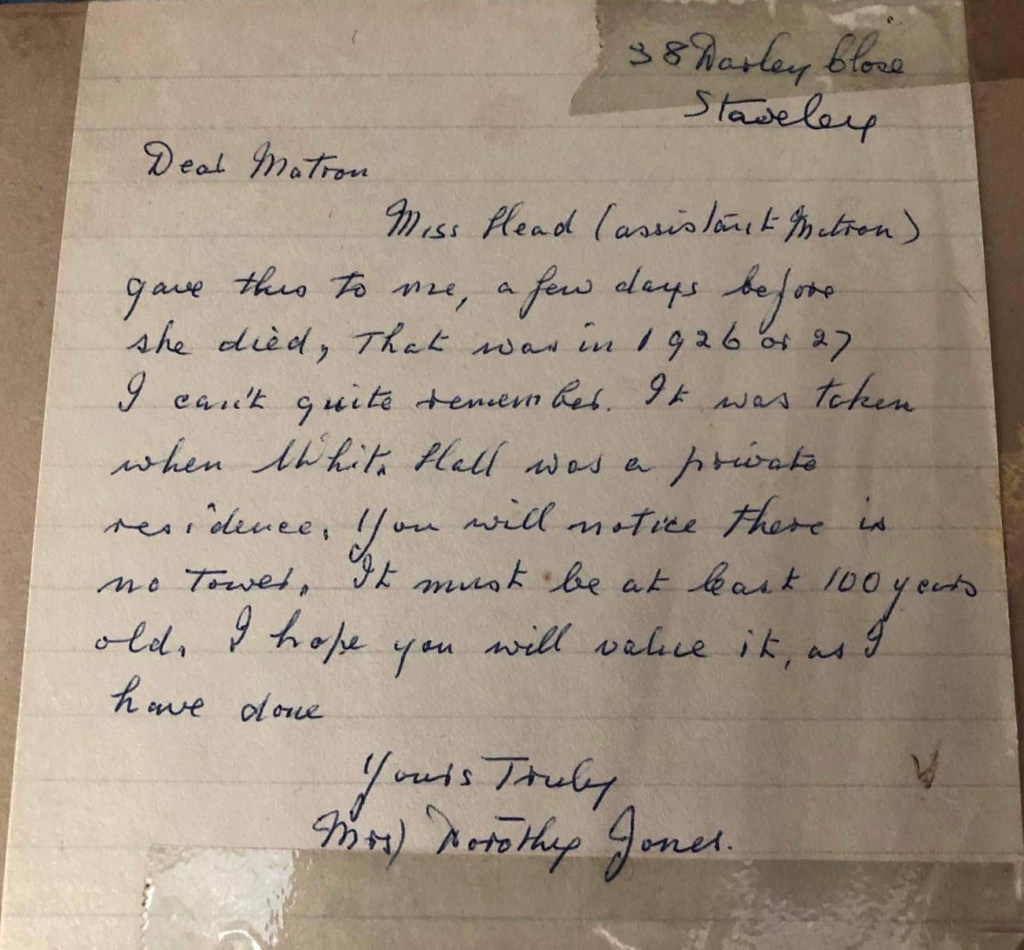 38 Darley Close
Staveley
Dear Matron
Miss Head (assistant Matron)
gave this to me, a few days before
she died, That was in 1926 or 27
I can't quite remember. It was taken
when White Hall was a private
residence, You will notice there is
no Tower, It must be at least 100 years
old, I hope you will value it, as I
have done
Yours Truly
Mrs) Dorothy Jones.